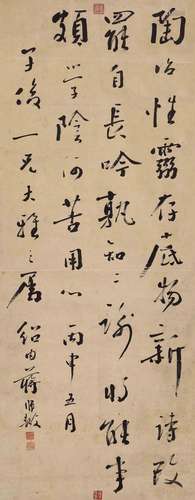 陶冶性靈存底物新詩改
罷自長吟孰知二謝將能事
頗學陰何苦用心 丙申五月
一兄大雅之屬 紹由蔣